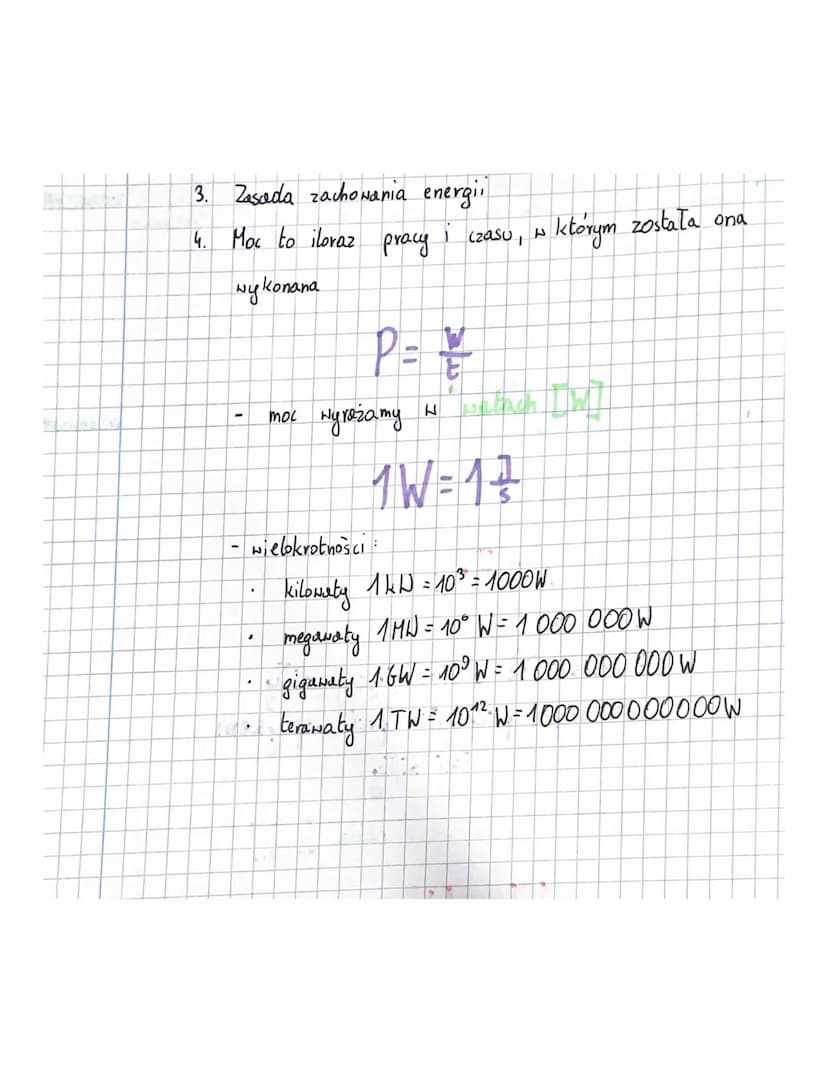 3. Zasada zachowania energii
4. Moc to iloraz pracy i czasu, w którym została ona
wykonana
P = W/t
- moc wyrażamy w watach [W]
1W = 1 J/s
- wielokrotności:
· kilowaty 1kW = 10³ = 1000W
· megawaty 1MW = 10⁶ W = 1 000 000W
· gigawaty 1GW = 10⁹ W = 1 000 000 000W
· terawaty 1TW = 10¹² W = 1000 000 000 000W